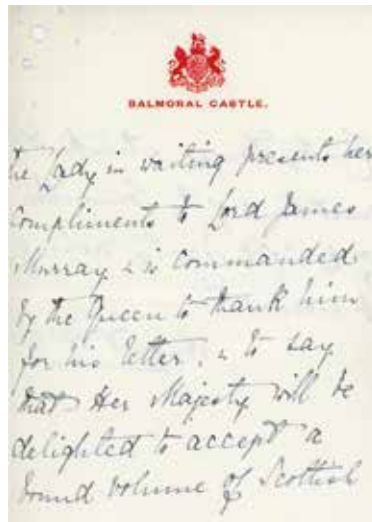 BALMORAL CASTLE.
The Lady in waiting presents her
compliments to Lord James
Murray & is commanded
by the Queen to thank him
for his letter, & to say
that Her Majesty will be
delighted to accept a
bound volume of Scottish